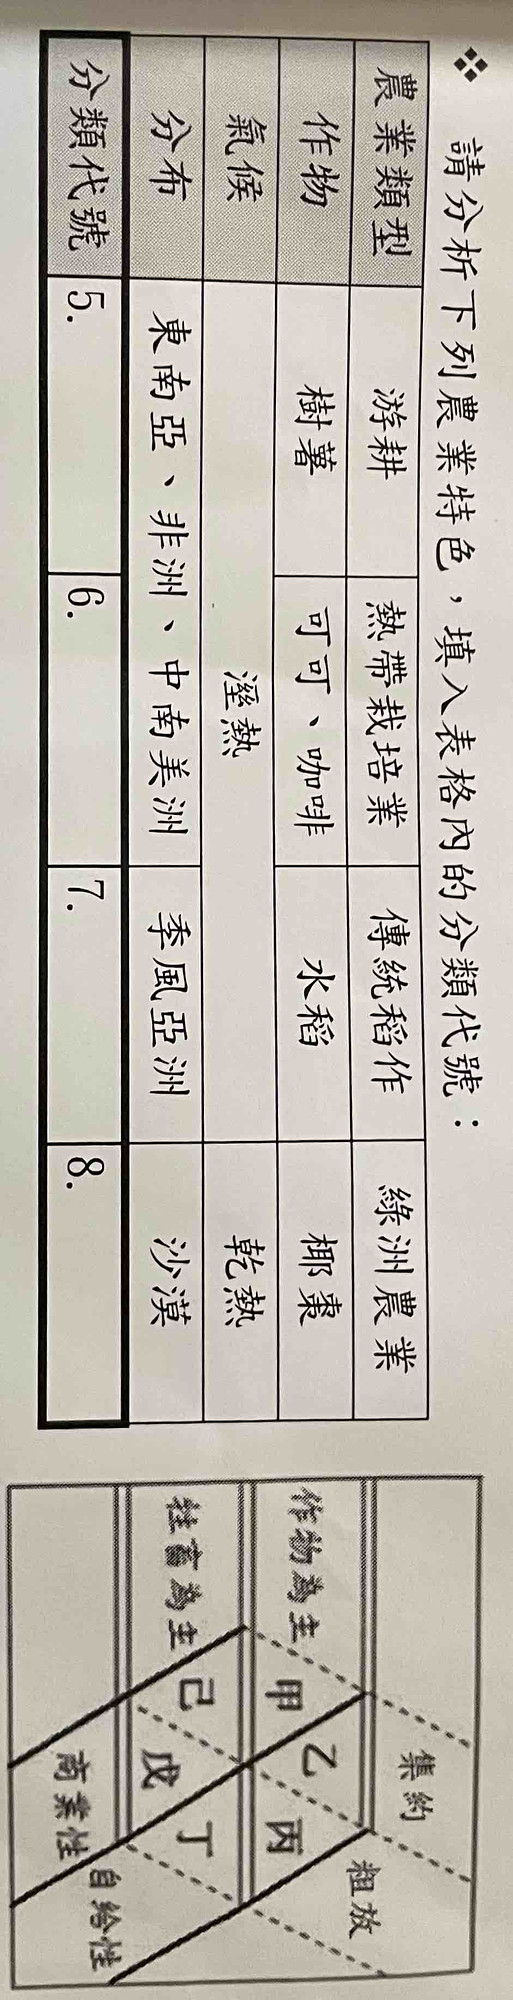 ❖ 請分析下列農業特色，填入表格內的分類代號：
農業類型 游耕 熱帶栽培業 傳統稻作 綠洲農業
作物 樹薯 可可、咖啡 水稻 椰棗
氣候 溼熱 乾熱
分布 東南亞、非洲、中南美洲 季風亞洲 沙漠
分類代號 5. 6. 7. 8.
集約 粗放
作物為主 甲 乙 丙
牲畜為主 己 戊 丁
商業性 自給性